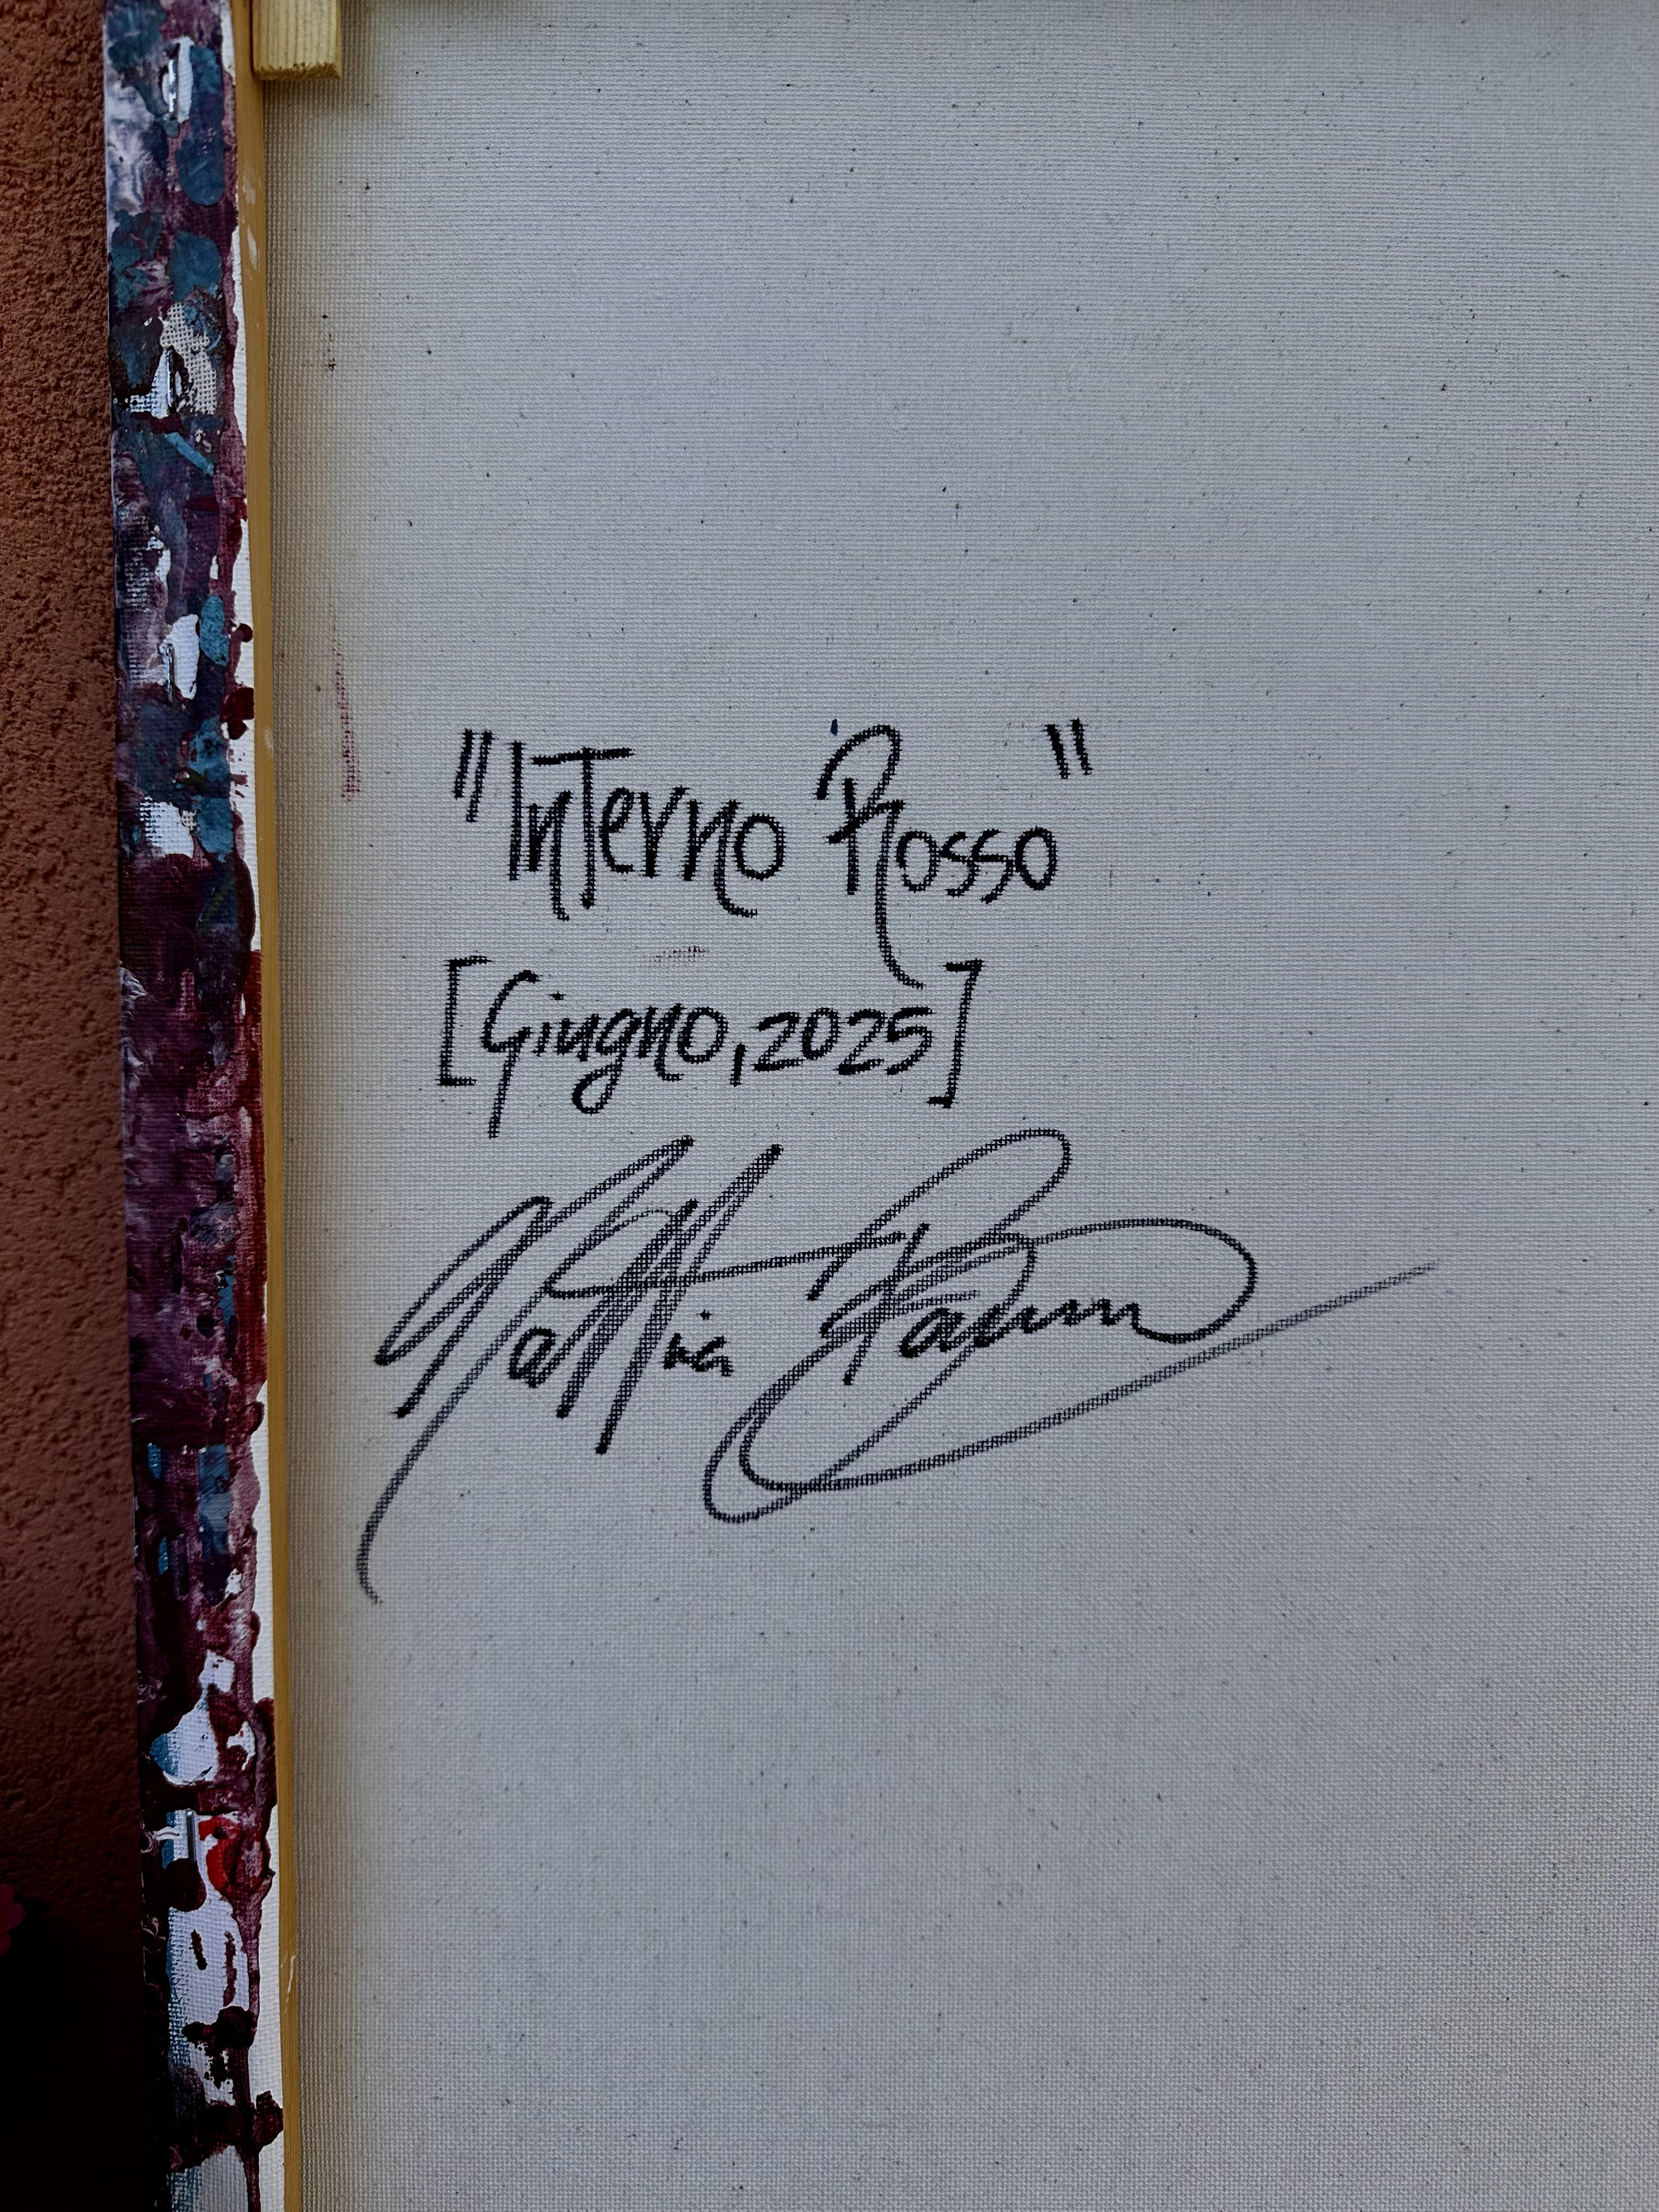 "Interno Rosso"
[Giugno, 2025]
Mattia